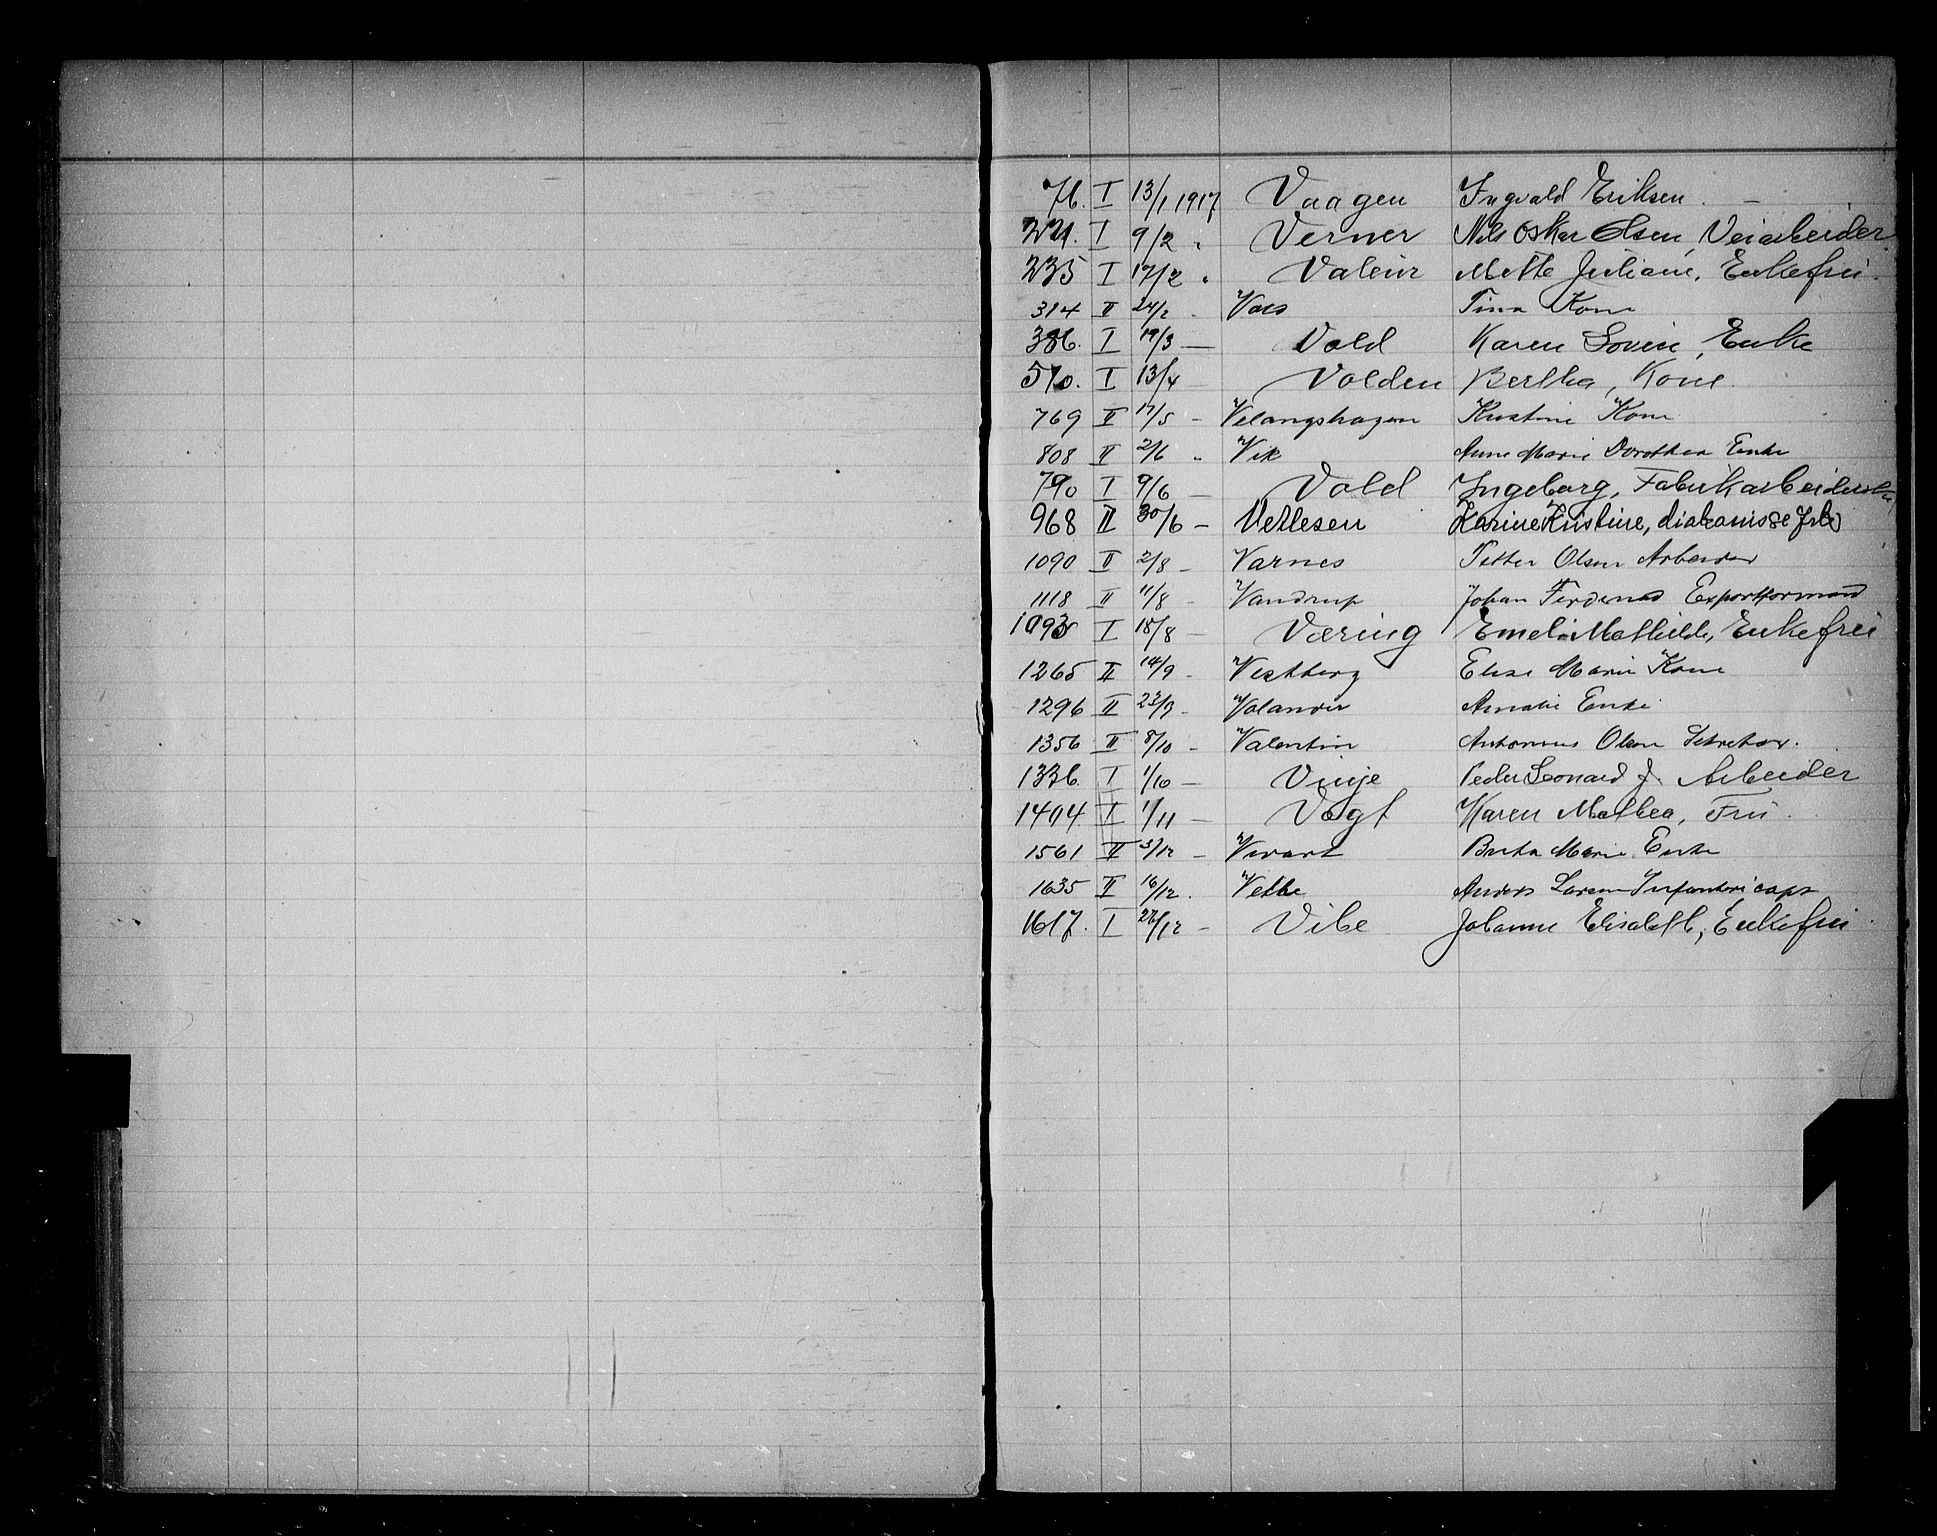 76. I 13/1 1917 Vaagen Ingvald Eriksen. —
221. I 9/2 " Verner Nils Oskar Olsen, Veiarbeider
235 I 17/2 " Valeur Mette Juliane, Enkefru.
314 II 24/2 - Vaes Tina Kone
386. I 19/3 — Vold Karen Lovise, Enke
570. I 13/4 Volden Bertha, Kone.
769 II 17/5 - Velangshagen Kristine Kone
808 II 2/6 " Vik Anne Marie Dorothea Enke
790 I 9/6 — Vold Ingeborg, Fabrikarbeiderske
968 II 30/6 - Vetlesen Karine Kristine, diakonisse frk.
1090 II 2/8 - Varnes Petter Olsen Arbeider
1118 II 11/8 - Vandrup Johan Ferdinand Exportformand
1093 I 18/8 — Væring Emelie Mathilde, Enkefru
1265 II 14/9 - Vestberg Elise Marie Kone
1296 II 23/9 - Volander Amalie Enke
1356 II 8/10 - Valentin Antonius Olsen Sekretær.
1336. I 1/10 — Vinje Peder Leonard J. Arbeider
1404. I 1/11 — Vogt Karen Mathea, Fru.
1561 II 3/12 - Berta Marie Enke
1635 II 16/12. Vetle Anders Larsen Infantericapt
1617. I 26/12 - Vibe Johanne Elisabeth, Enkefru